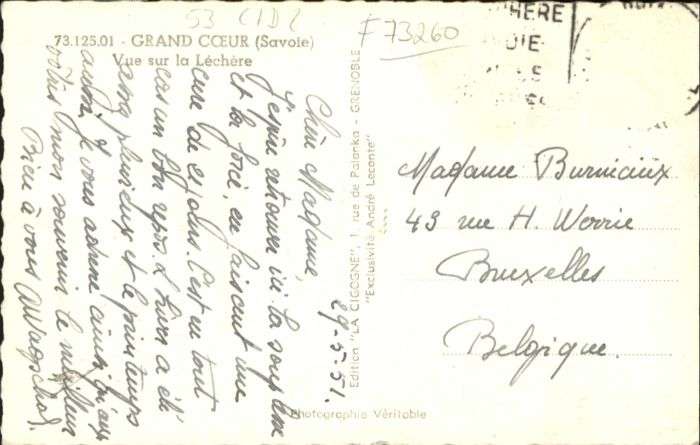 53 CIDL
F 73260
73.125.01 - GRAND CŒUR (Savoie)
Vue sur la Léchère
HERE
Chère Madame,
29-5-51.
J'espère retrouver ici la souplesse
et la force, en faisant une
cure de 21 jours. C'est en tout
cas un bon repos. L'hiver a été
long pluvieux et le printemps
aussi. Je vous adresse ainsi qu'aux
vôtres mon souvenir le meilleur
Bien à vous
Edition "LA CIGOGNE", 1, rue de Palanka - GRENOBLE
"Exclusivité André Leconte"
Madame Burniaux
43 rue H. Werrie
Bruxelles
Belgique.
Photographie Véritable